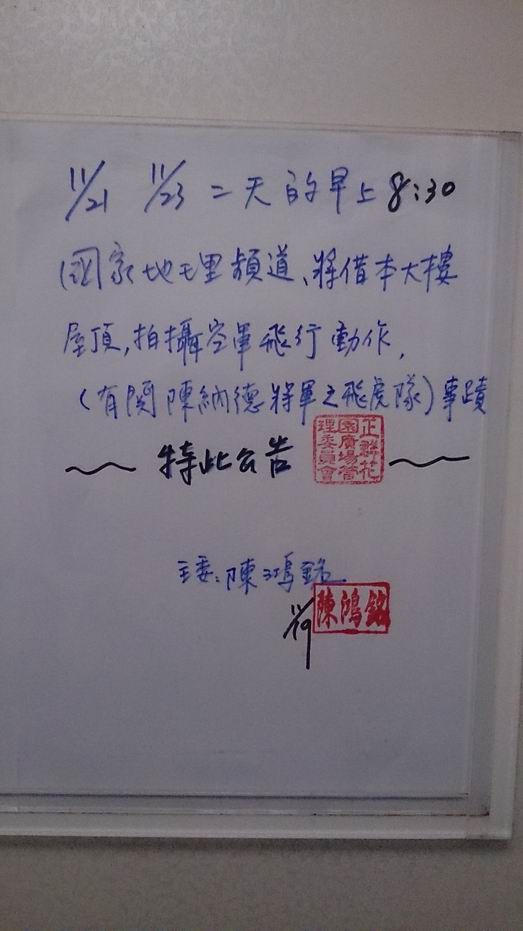 11/21 11/23 二天的早上8:30
國家地理頻道、將借本大樓
屋頂,拍攝空軍飛行動作,
(有関陳納德將軍之飛虎隊)事蹟
~ 特此公告 ~
正群花
園廣場管
理委員會
主委:陳鴻銘
陳鴻銘
11/19